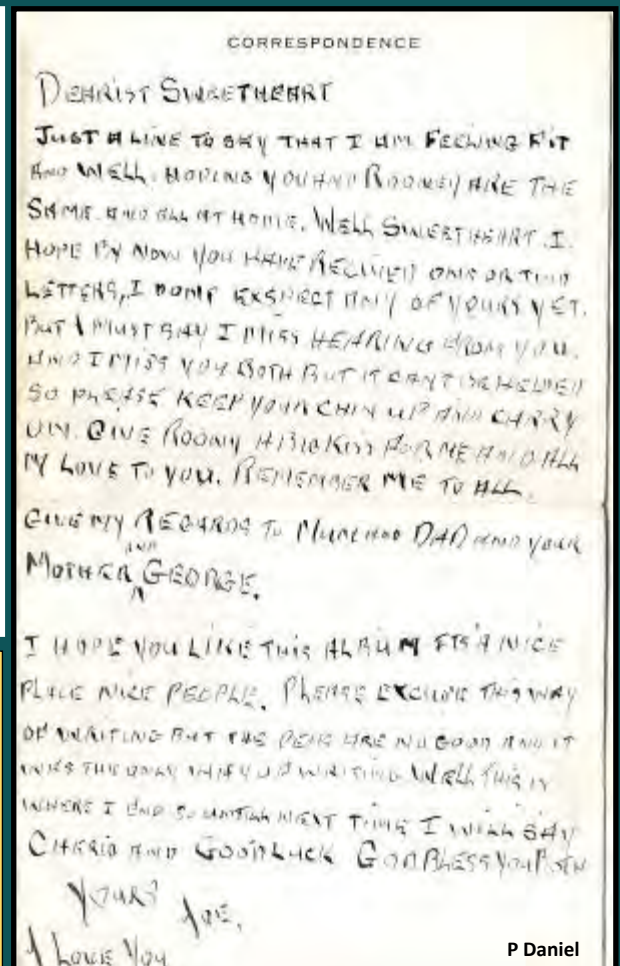 CORRESPONDENCE
DEARIST SWEETHEART
JUST A LINE TO SAY THAT I AM FEELING FIT
AND WELL. HOPING YOU AND ROONEY ARE THE
SAME. AND ALL AT HOME. WELL SWEETHEART. I
HOPE BY NOW YOU HAVE RECIVED ONE OR TWO
LETTERS, I DONT EXSPECT ANY OF YOURS YET.
BUT I MUST SAY I MISS HEARING FROM YOU.
AND I MISS YOU BOTH BUT IT CANT BE HELPED
SO PLEASE KEEP YOUR CHIN UP AND CARRY
ON. GIVE ROONY A BIG KISS FOR ME AND ALL
MY LOVE TO YOU. REMEMBER ME TO ALL.
GIVE MY REGARDS TO MUM AND DAD AND YOUR
MOTHER AND GEORGE.
I HOPE YOU LIKE THIS ALBUM ITS A NICE
PLACE NICE PEOPLE. PLEASE EXCUSE THIS WAY
OF WRITING BUT THE PENS ARE NO GOOD AND IT
WAS THE ONLY WAY OF WRITING WELL THIS IS
WHERE I END SO UNTILL NEXT TIME I WILL SAY
CHERIO AND GOODLUCK GOD BLESS YOU BOTH
YOURS JOE.
I LOVE YOU
P Daniel